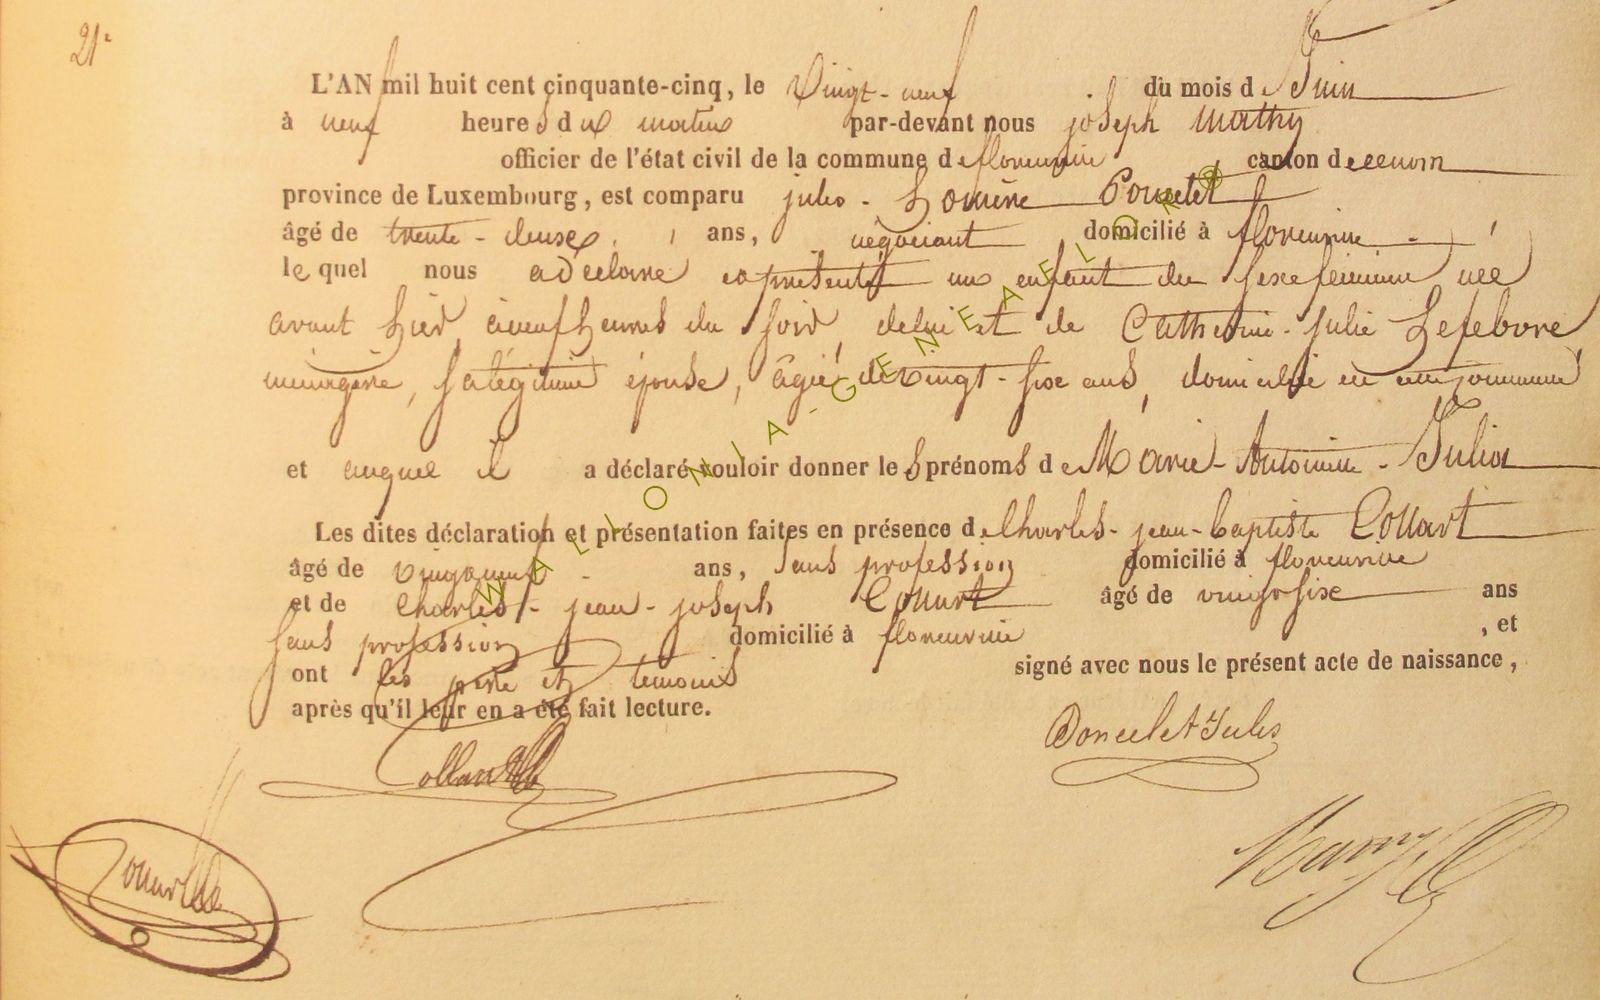 21
L'AN mil huit cent cinquante-cinq, le Vingt-neuf du mois de Juin
à neuf heures du matin par-devant nous joseph mathy
officier de l'état civil de la commune de florenville canton de
province de Luxembourg, est comparu jules - homère Poncelet
âgé de trente-deux ans, négociant domicilié à florenville
lequel nous a déclaré et présenté un enfant du sexe féminin née
avant hier à neuf heures du soir, de lui et de Catherine - julie Lefebvre
ménagère, sa légitime épouse, âgée de vingt-six ans, domiciliée en cette commune
et auquel il a déclaré vouloir donner les prénoms de Marie - Antoinette - Julia
Les dites déclaration et présentation faites en présence de Charles - jean - baptiste Collart
âgé de vingt neuf ans, sans profession domicilié à florenville
et de Charles - jean - joseph Collart âgé de vingt six ans
sans profession domicilié à florenville , et
ont les père et témoins signé avec nous le présent acte de naissance,
après qu'il leur en a été fait lecture.
Poncelet Jules
Collart
WALLONIA-GENEALOR®